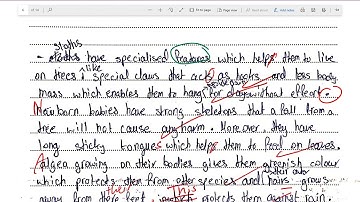 sloths
- sloths have specialised features which helps them to live
on trees alike special claws that acts as hooks and less body
mass which enables them to hang for days without effort.
Newborn babies have strong skeletons that a fall from a
tree will not cause any harm. Moreover, they have
long sticky tongues which helps them to feed on leaves.
Algea growing on their bodies gives them greenish colour
which protects them from other species and hairs grows
away from there feet, which protects them against rain.
their This